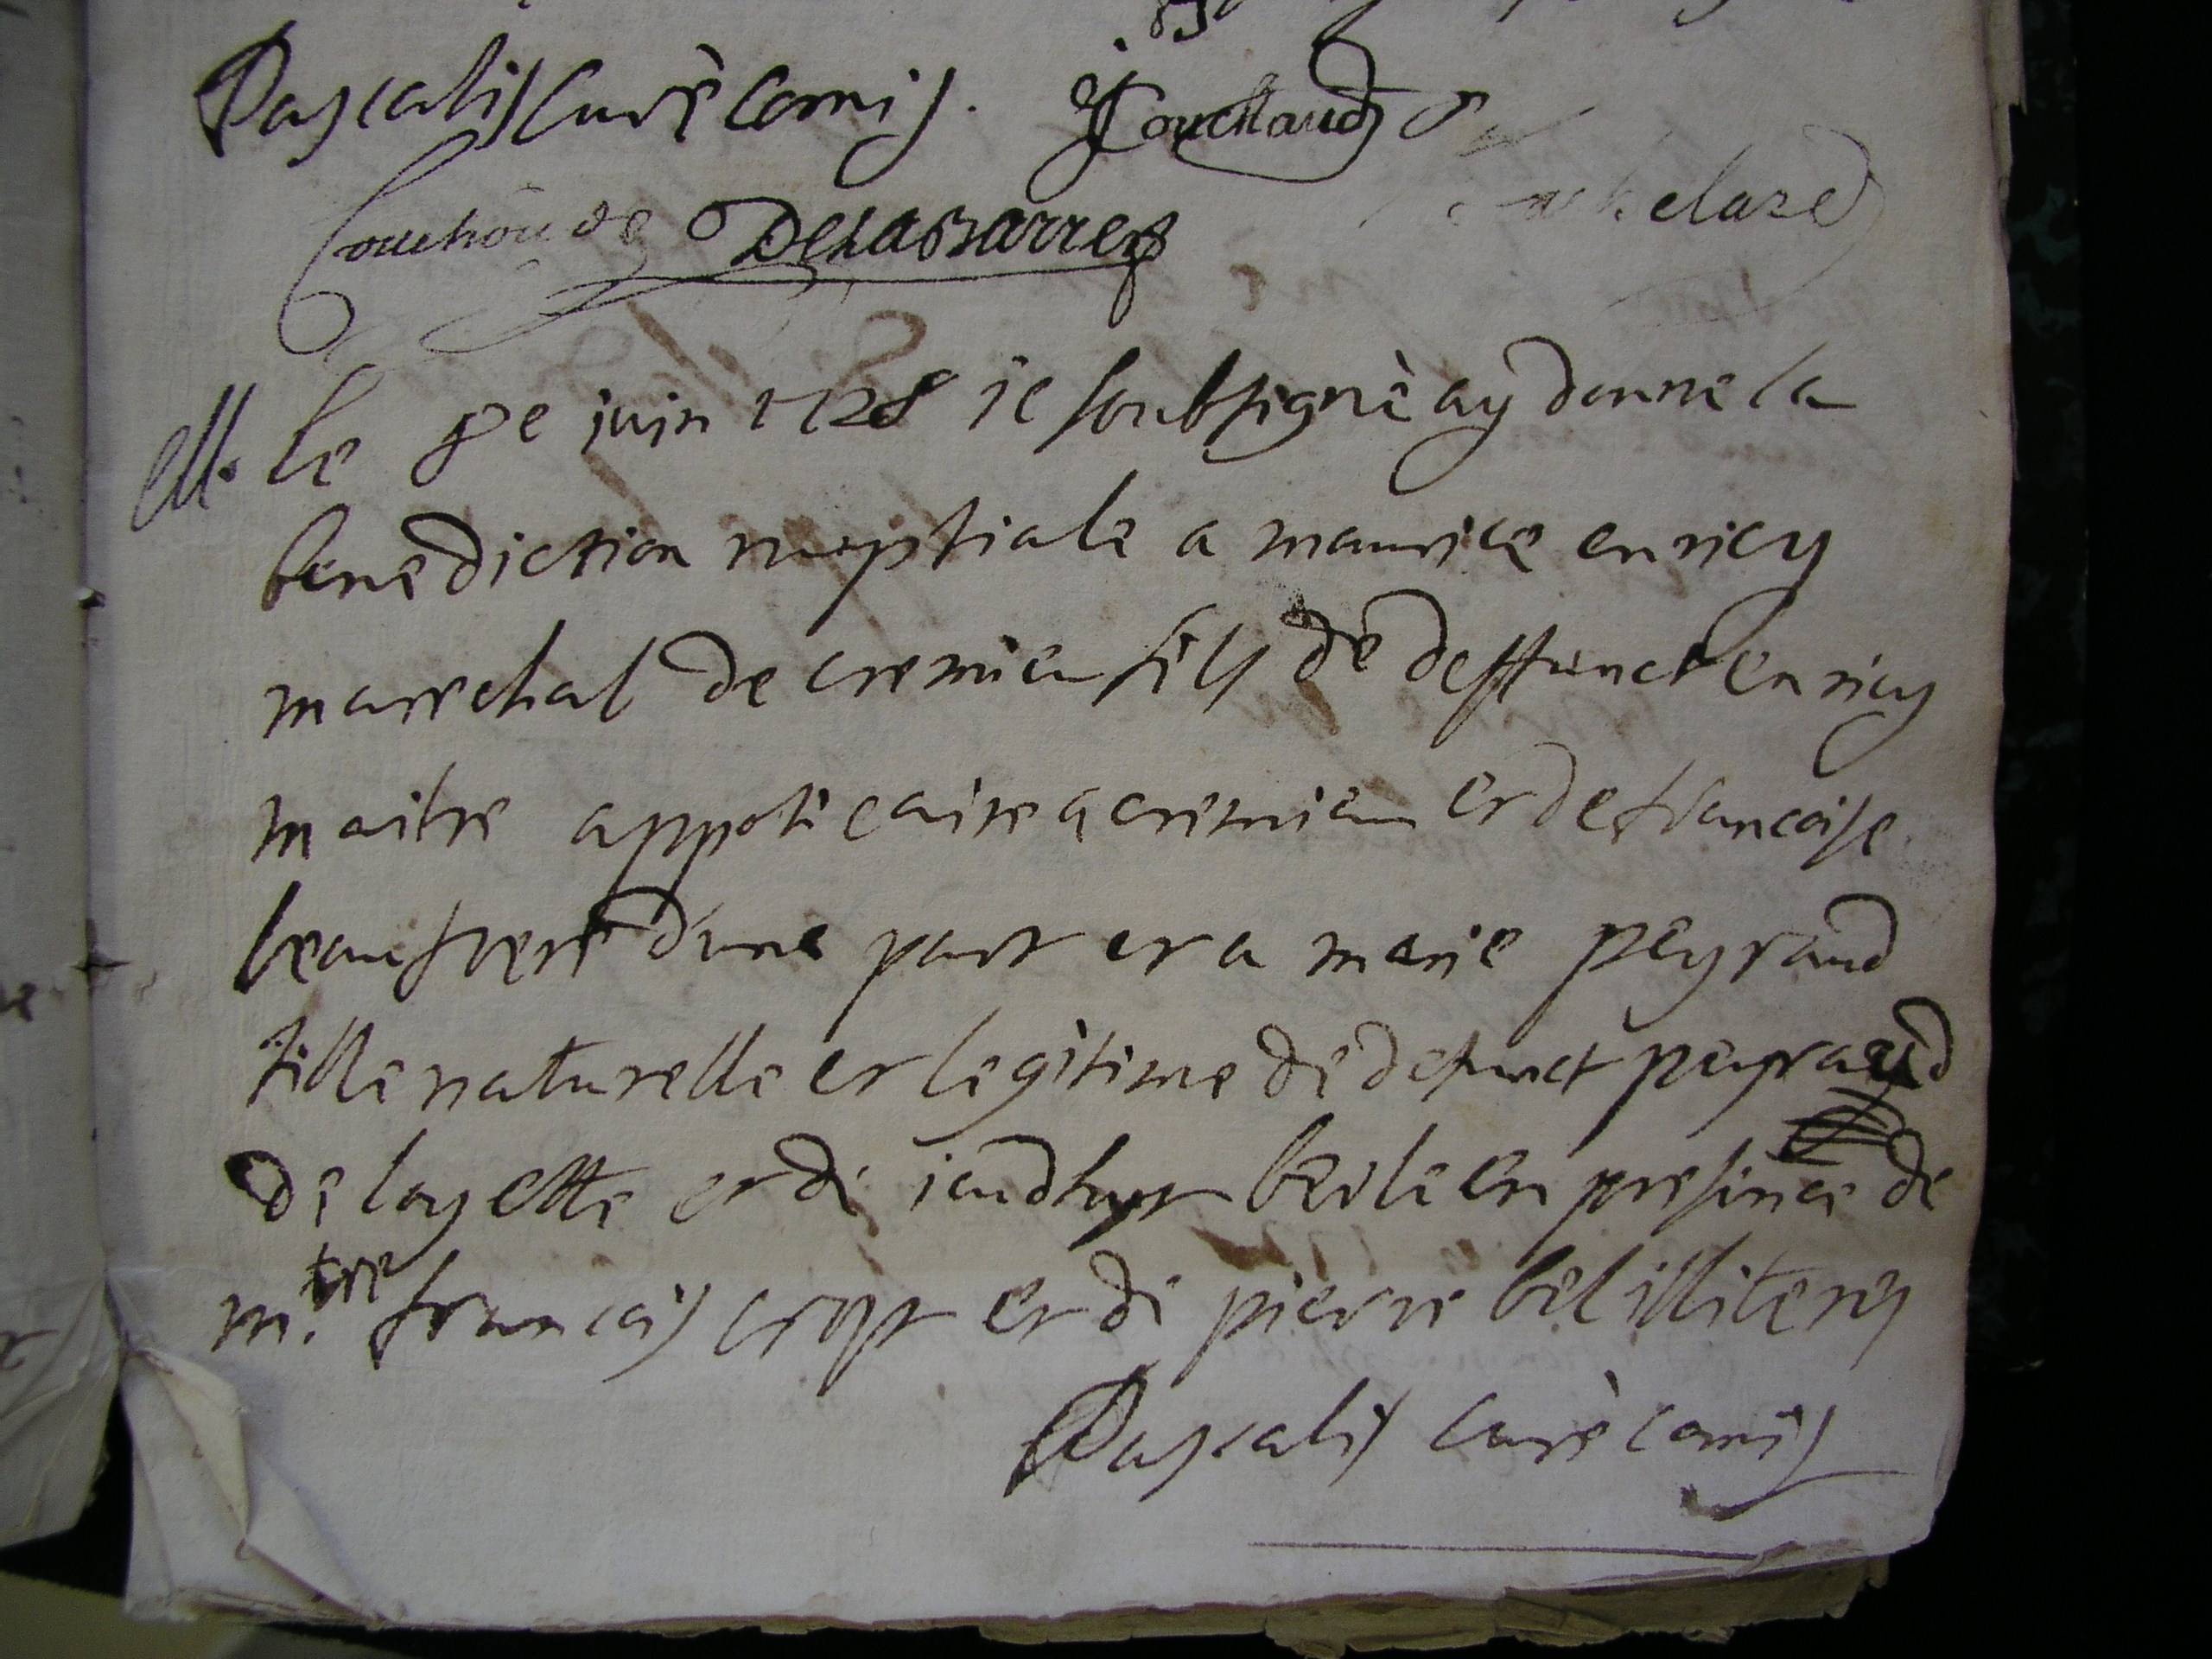 Pascalis Curè Comis. Couchaud
Couchoude DeLaBarre
elare
M. Le 8e juin 1728 je soubsignè ay donne la
benediction nuptiale a maurice enricy
marechal de cremieu fils de deffunct enricy
maitre appoticaire a cremieu et de francoise
beaufrere d'une part et a marie peyraud
fille naturelle et legitime de defunct peyraud
de layette et de berle en presence de
m.tre francois cropt et de pierre bel illiteres
Pascalis Curè Comis